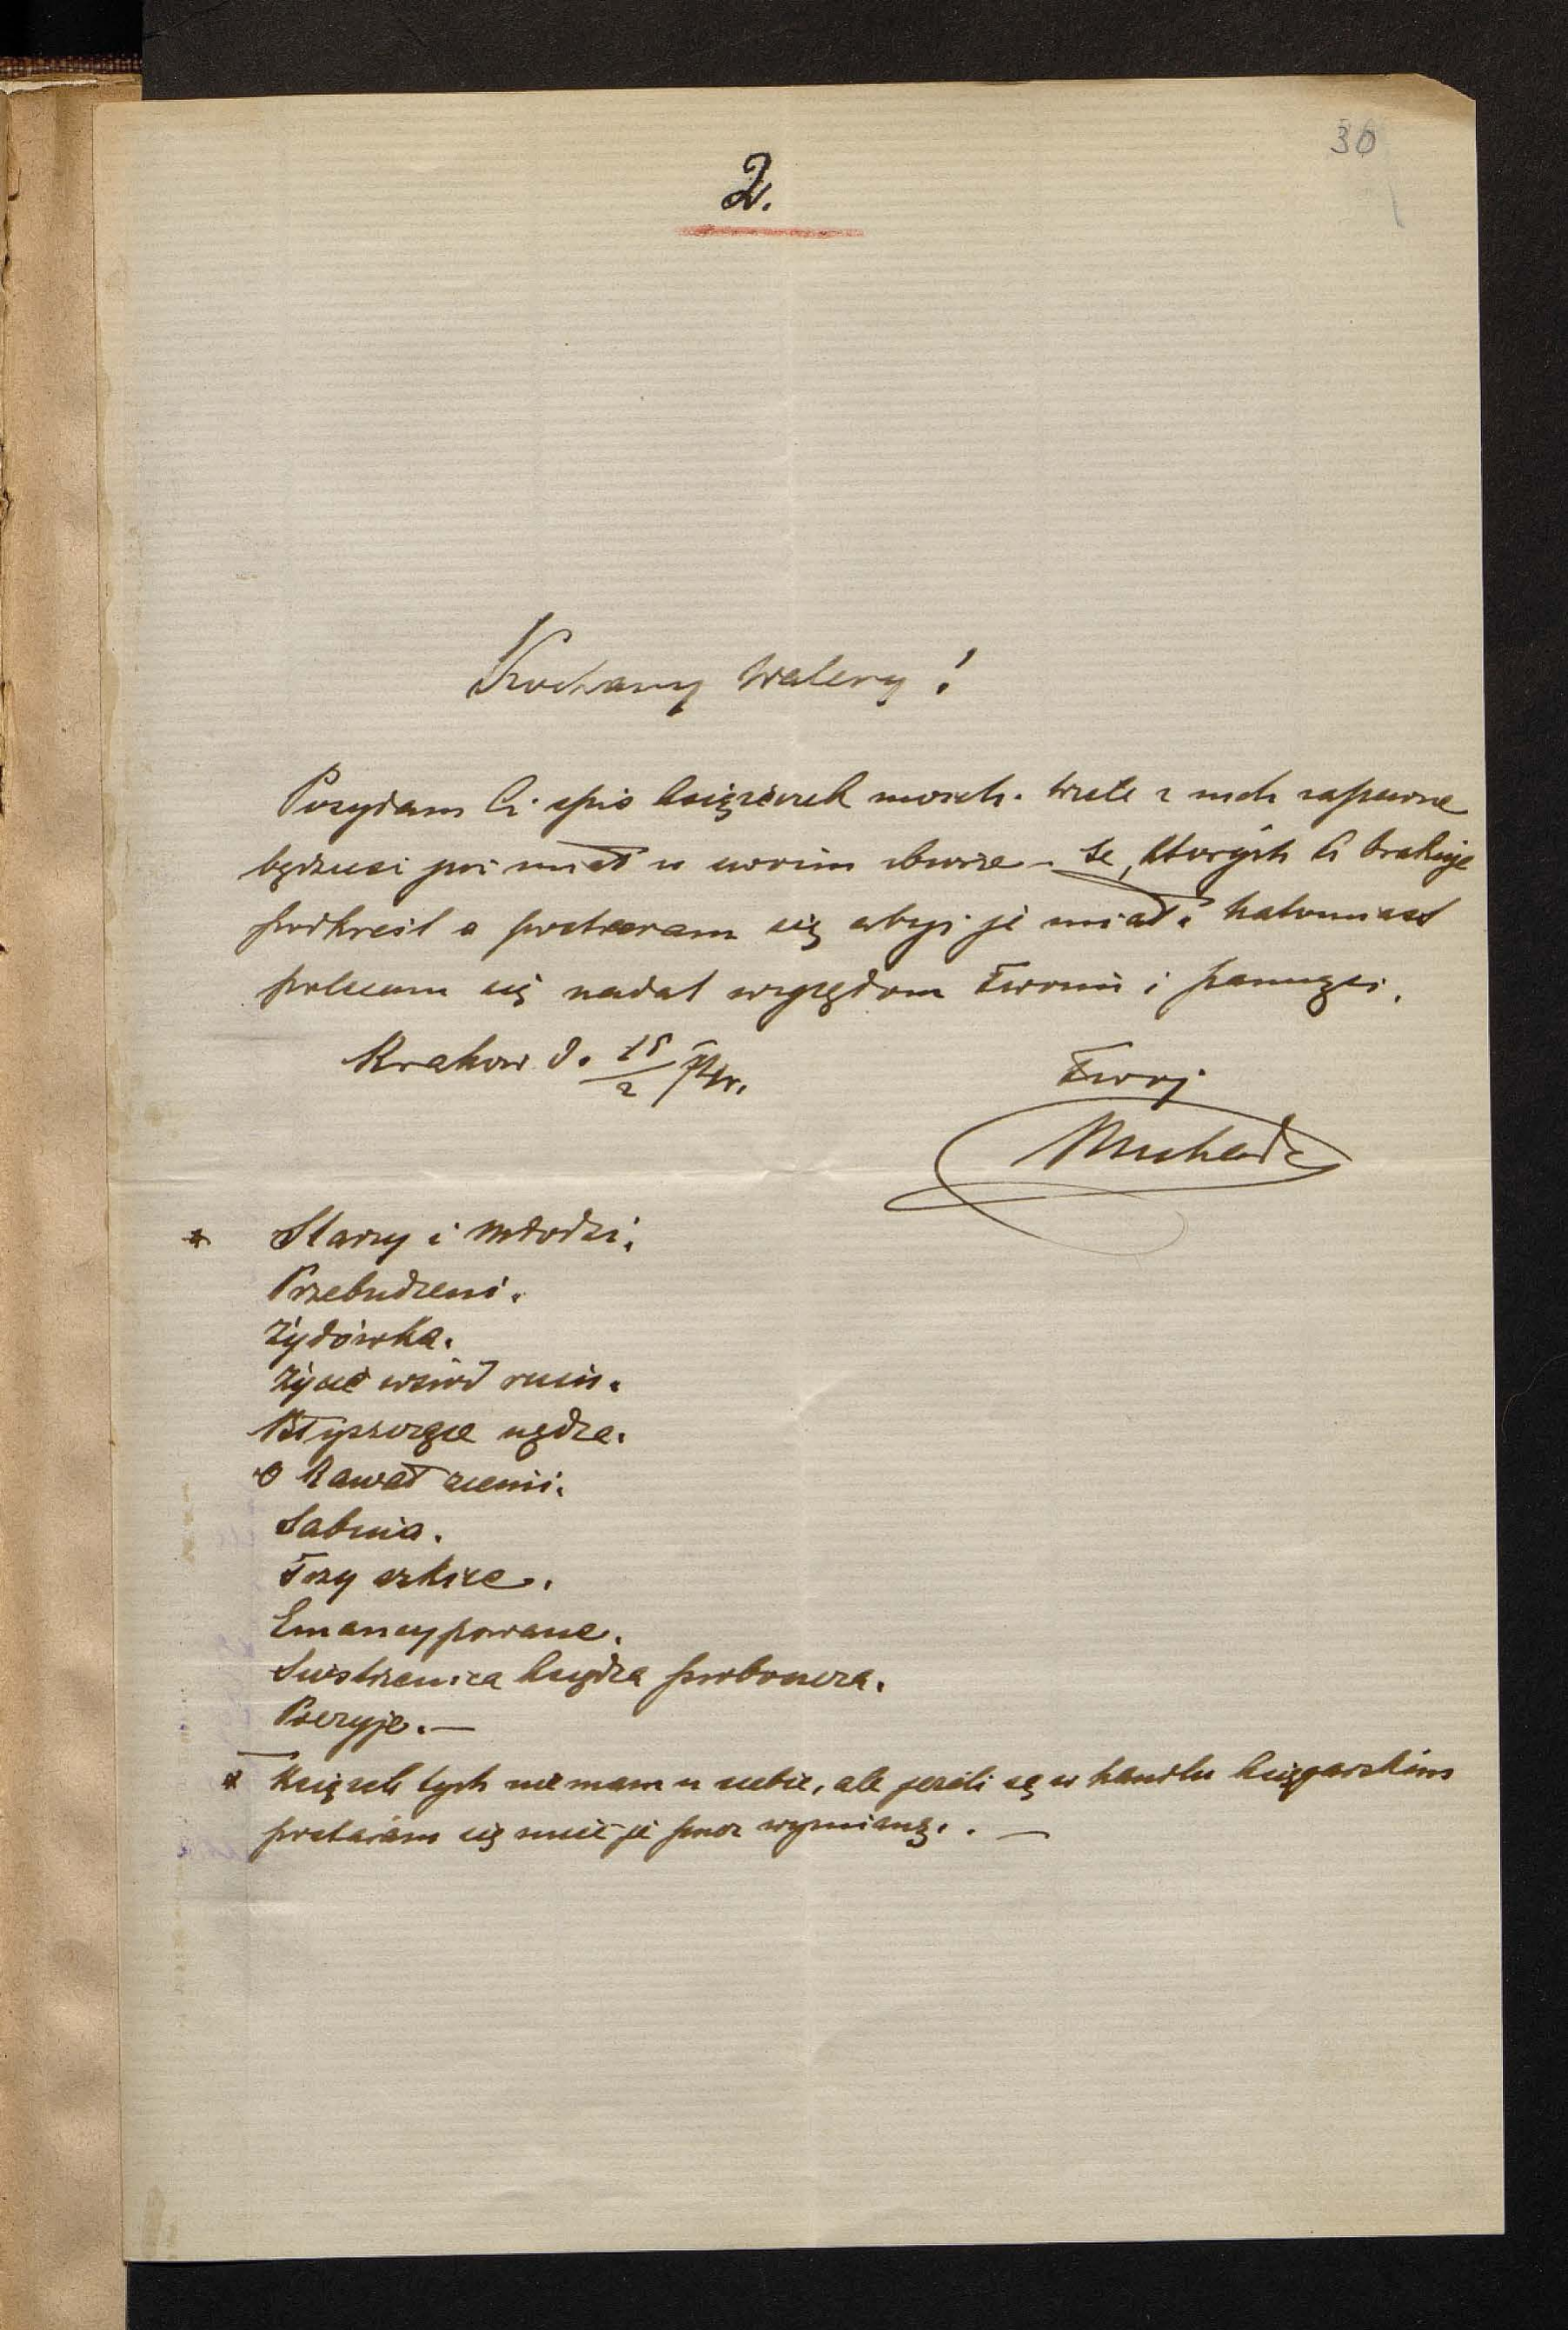 30
2.
Kochany Walery!
Posyłam Ci spis książeczek moich. Wiele z nich zapewne
będziesz już miał w swoim zbiorze – te, których Ci brakuje
podkreśl a postaram się abyś je miał. Natomiast
polecam się nadal względom Twoim i pamięci.
Krakow d. 15/2
Twoj
* Starzy i młodzi.
Przebudzeni.
Żydówka.
Życie wśród ruin.
Błyszczące nędze.
O kawał ziemi.
Sabina.
Trzy szkice.
Emancypowane.
Siostrzenica księdza proboszcza.
Poezyje. —
* Książek tych nie mam u siebie, ale jeżeli są w handlu księgarskim
postaram się mieć je przez wymianę. . —